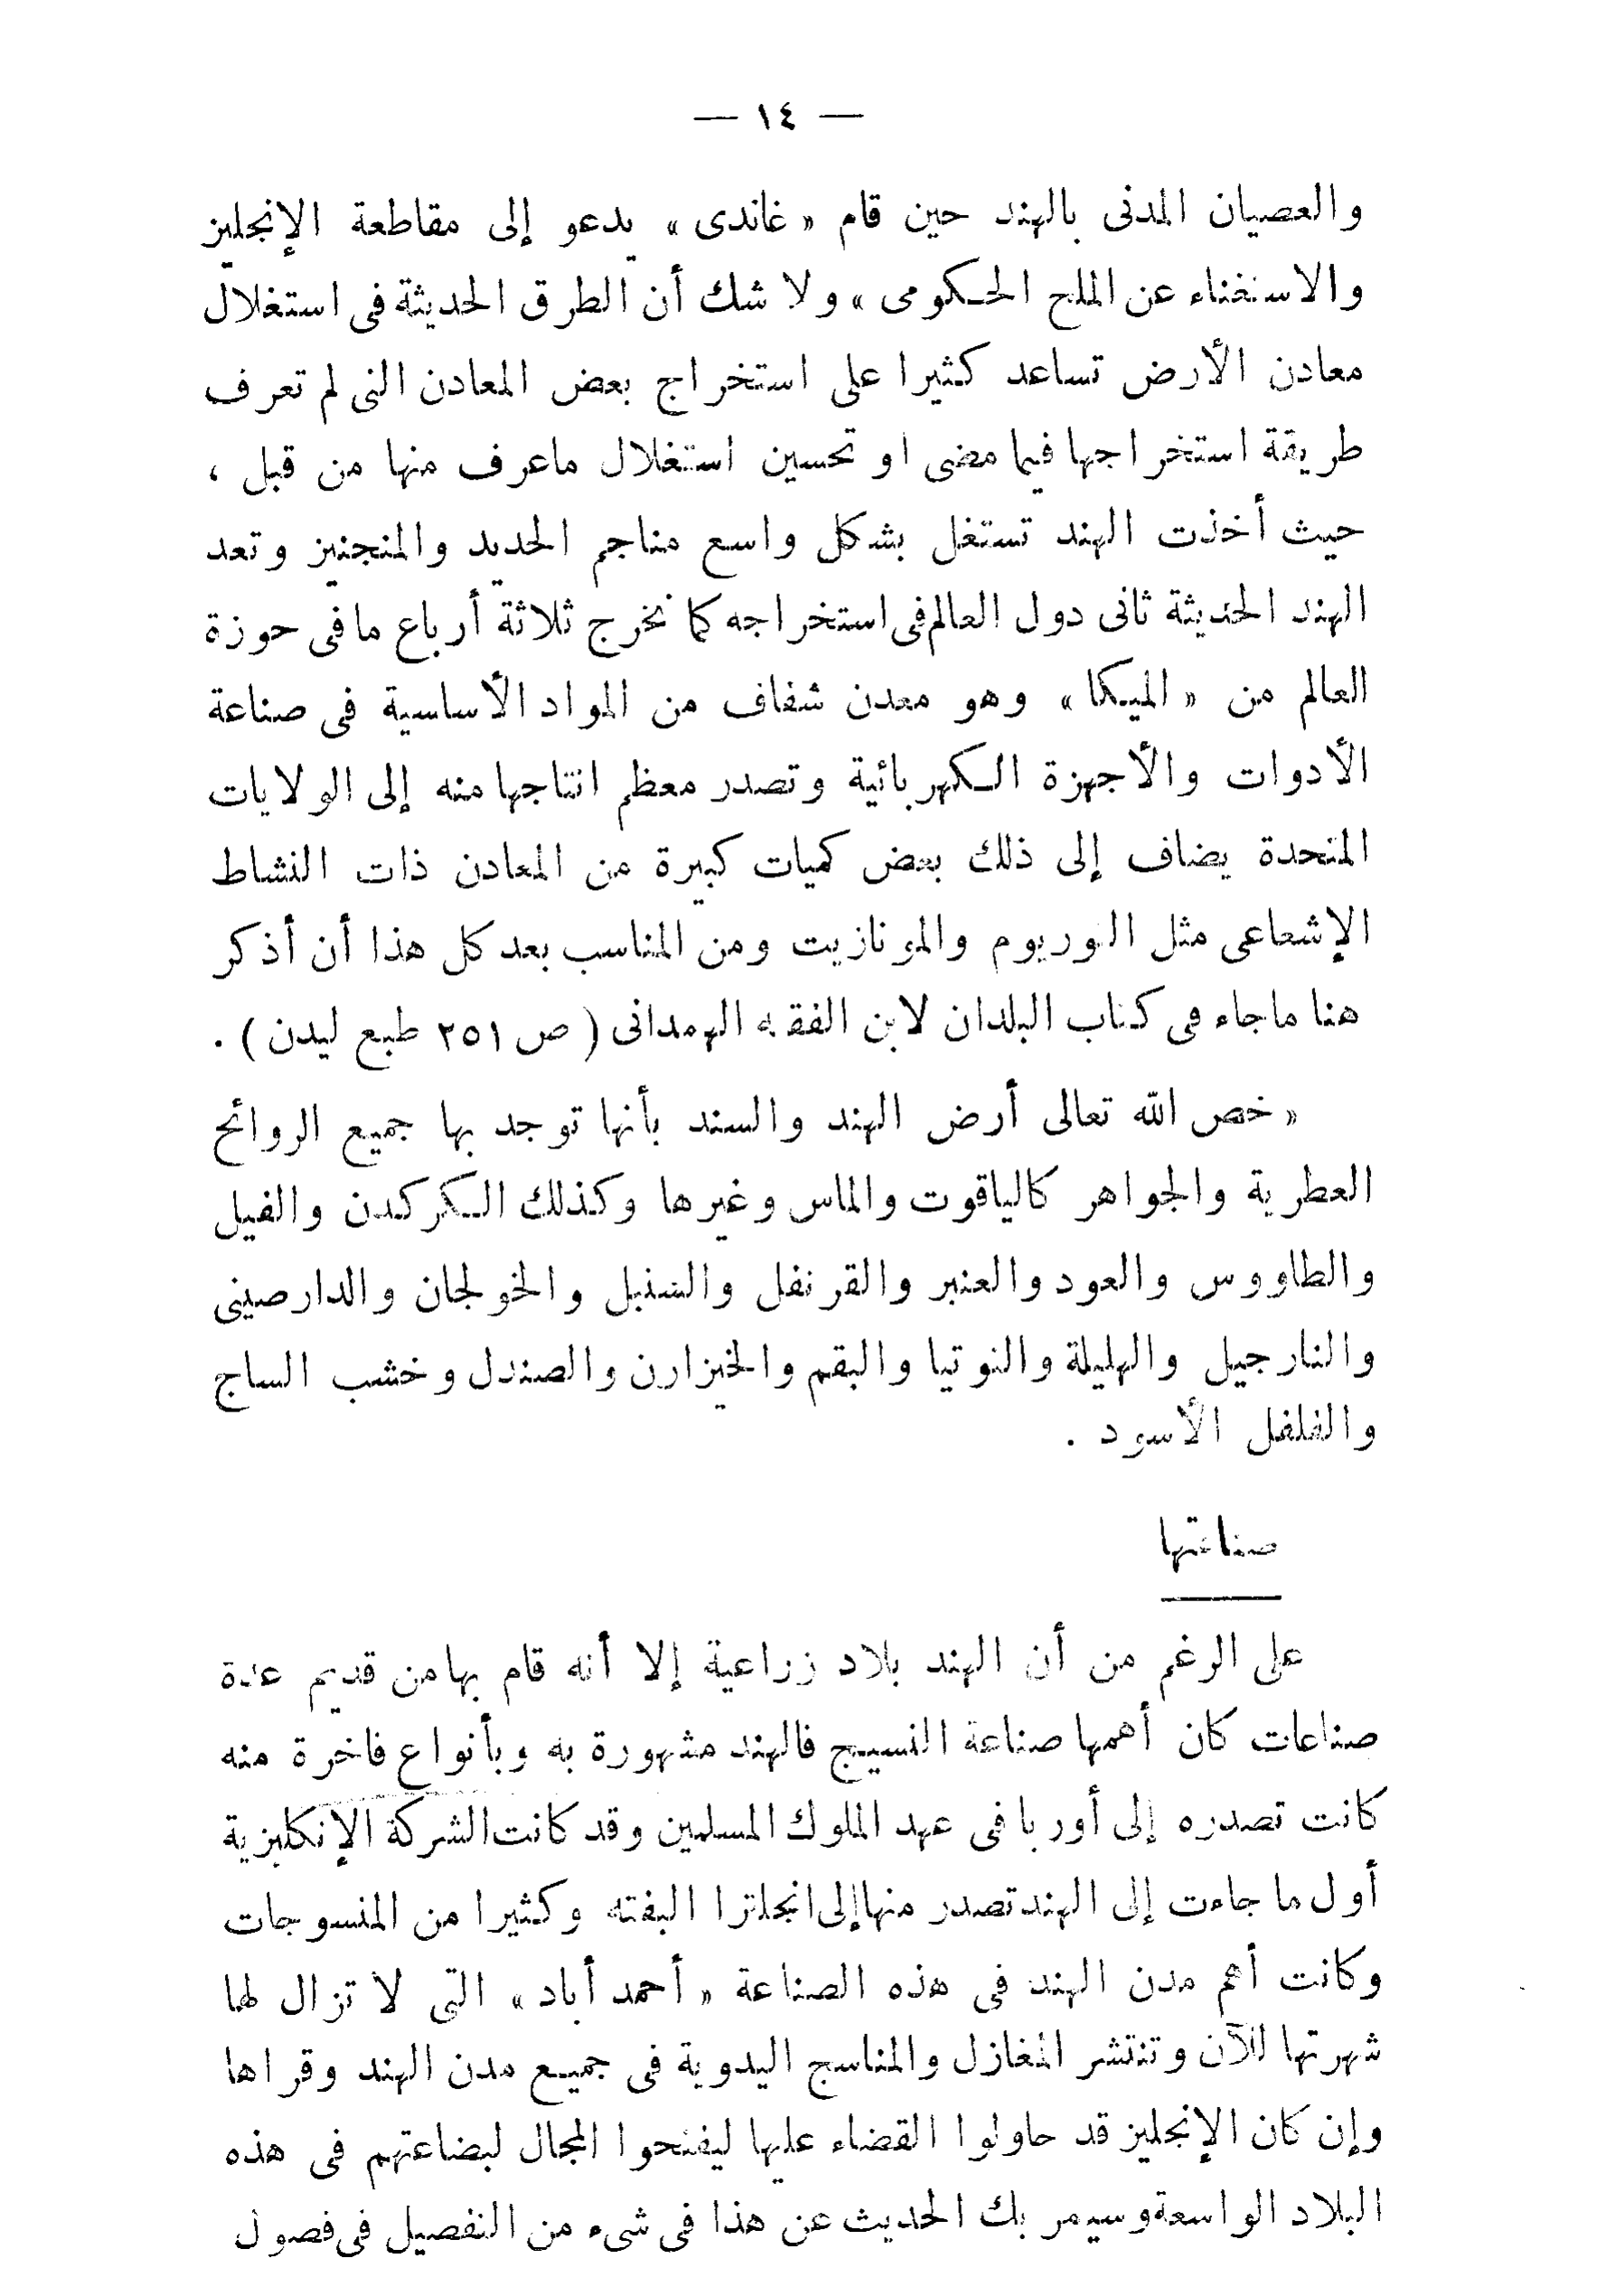 — ١٤ —
والعصيان المدنى بالهند حين قام « غاندى » يدعو إلى مقاطعة الإنجليز
والاستغناء عن الملح الحكومى » ولا شك أن الطرق الحديثة فى استغلال
معادن الأرض تساعد كثيرا على استخراج بعض المعادن التى لم تعرف
طريقة استخراجها فيما مضى او تحسين استغلال ماعرف منها من قبل ،
حيث أخذت الهند تستغل بشكل واسع مناجم الحديد والمنجنيز وتعد
الهند الحديثة ثانى دول العالم فى استخراجه كما تخرج ثلاثة أرباع ما فى حوزة
العالم من « الميكا » وهو معدن شفاف من المواد الأساسية فى صناعة
الأدوات والأجهزة الكهربائية وتصدر معظم انتاجها منه إلى الولايات
المتحدة يضاف إلى ذلك بعض كميات كبيرة من المعادن ذات النشاط
الإشعاعى مثل الثوريوم والمونازيت ومن المناسب بعد كل هذا أن أذكر
هنا ماجاء فى كتاب البلدان لابن الفقيه الهمدانى ( ص ٢٥١ طبع ليدن ) .
« خص الله تعالى أرض الهند والسند بأنها توجد بها جميع الروائح
العطرية والجواهر كالياقوت والماس وغيرها وكذلك الكركدن والفيل
والطاووس والعود والعنبر والقرنفل والسنبل والخولجان والدارصينى
والنارجيل والهليلة والتوتيا والبقم والخيزارن والصندل وخشب الساج
والفلفل الأسود .
صناعتها
على الرغم من أن الهند بلاد زراعية إلا أنه قام بها من قديم عدة
صناعات كان أهمها صناعة النسيج فالهند مشهورة به وبأنواع فاخرة منه
كانت تصدره إلى أوربا فى عهد الملوك المسلمين وقد كانت الشركة الإنكليزية
أول ما جاءت إلى الهند تصدر منها إلى انجلترا البفته وكثيرا من المنسوجات
وكانت أهم مدن الهند فى هذه الصناعة « أحمد أباد » التى لا تزال لها
شهرتها للآن وتنتشر المغازل والمناسج اليدوية فى جميع مدن الهند وقراها
وإن كان الإنجليز قد حاولوا القضاء عليها ليفتحوا المجال لبضاعتهم فى هذه
البلاد الواسعة وسيمر بك الحديث عن هذا فى شىء من التفصيل فى فصول